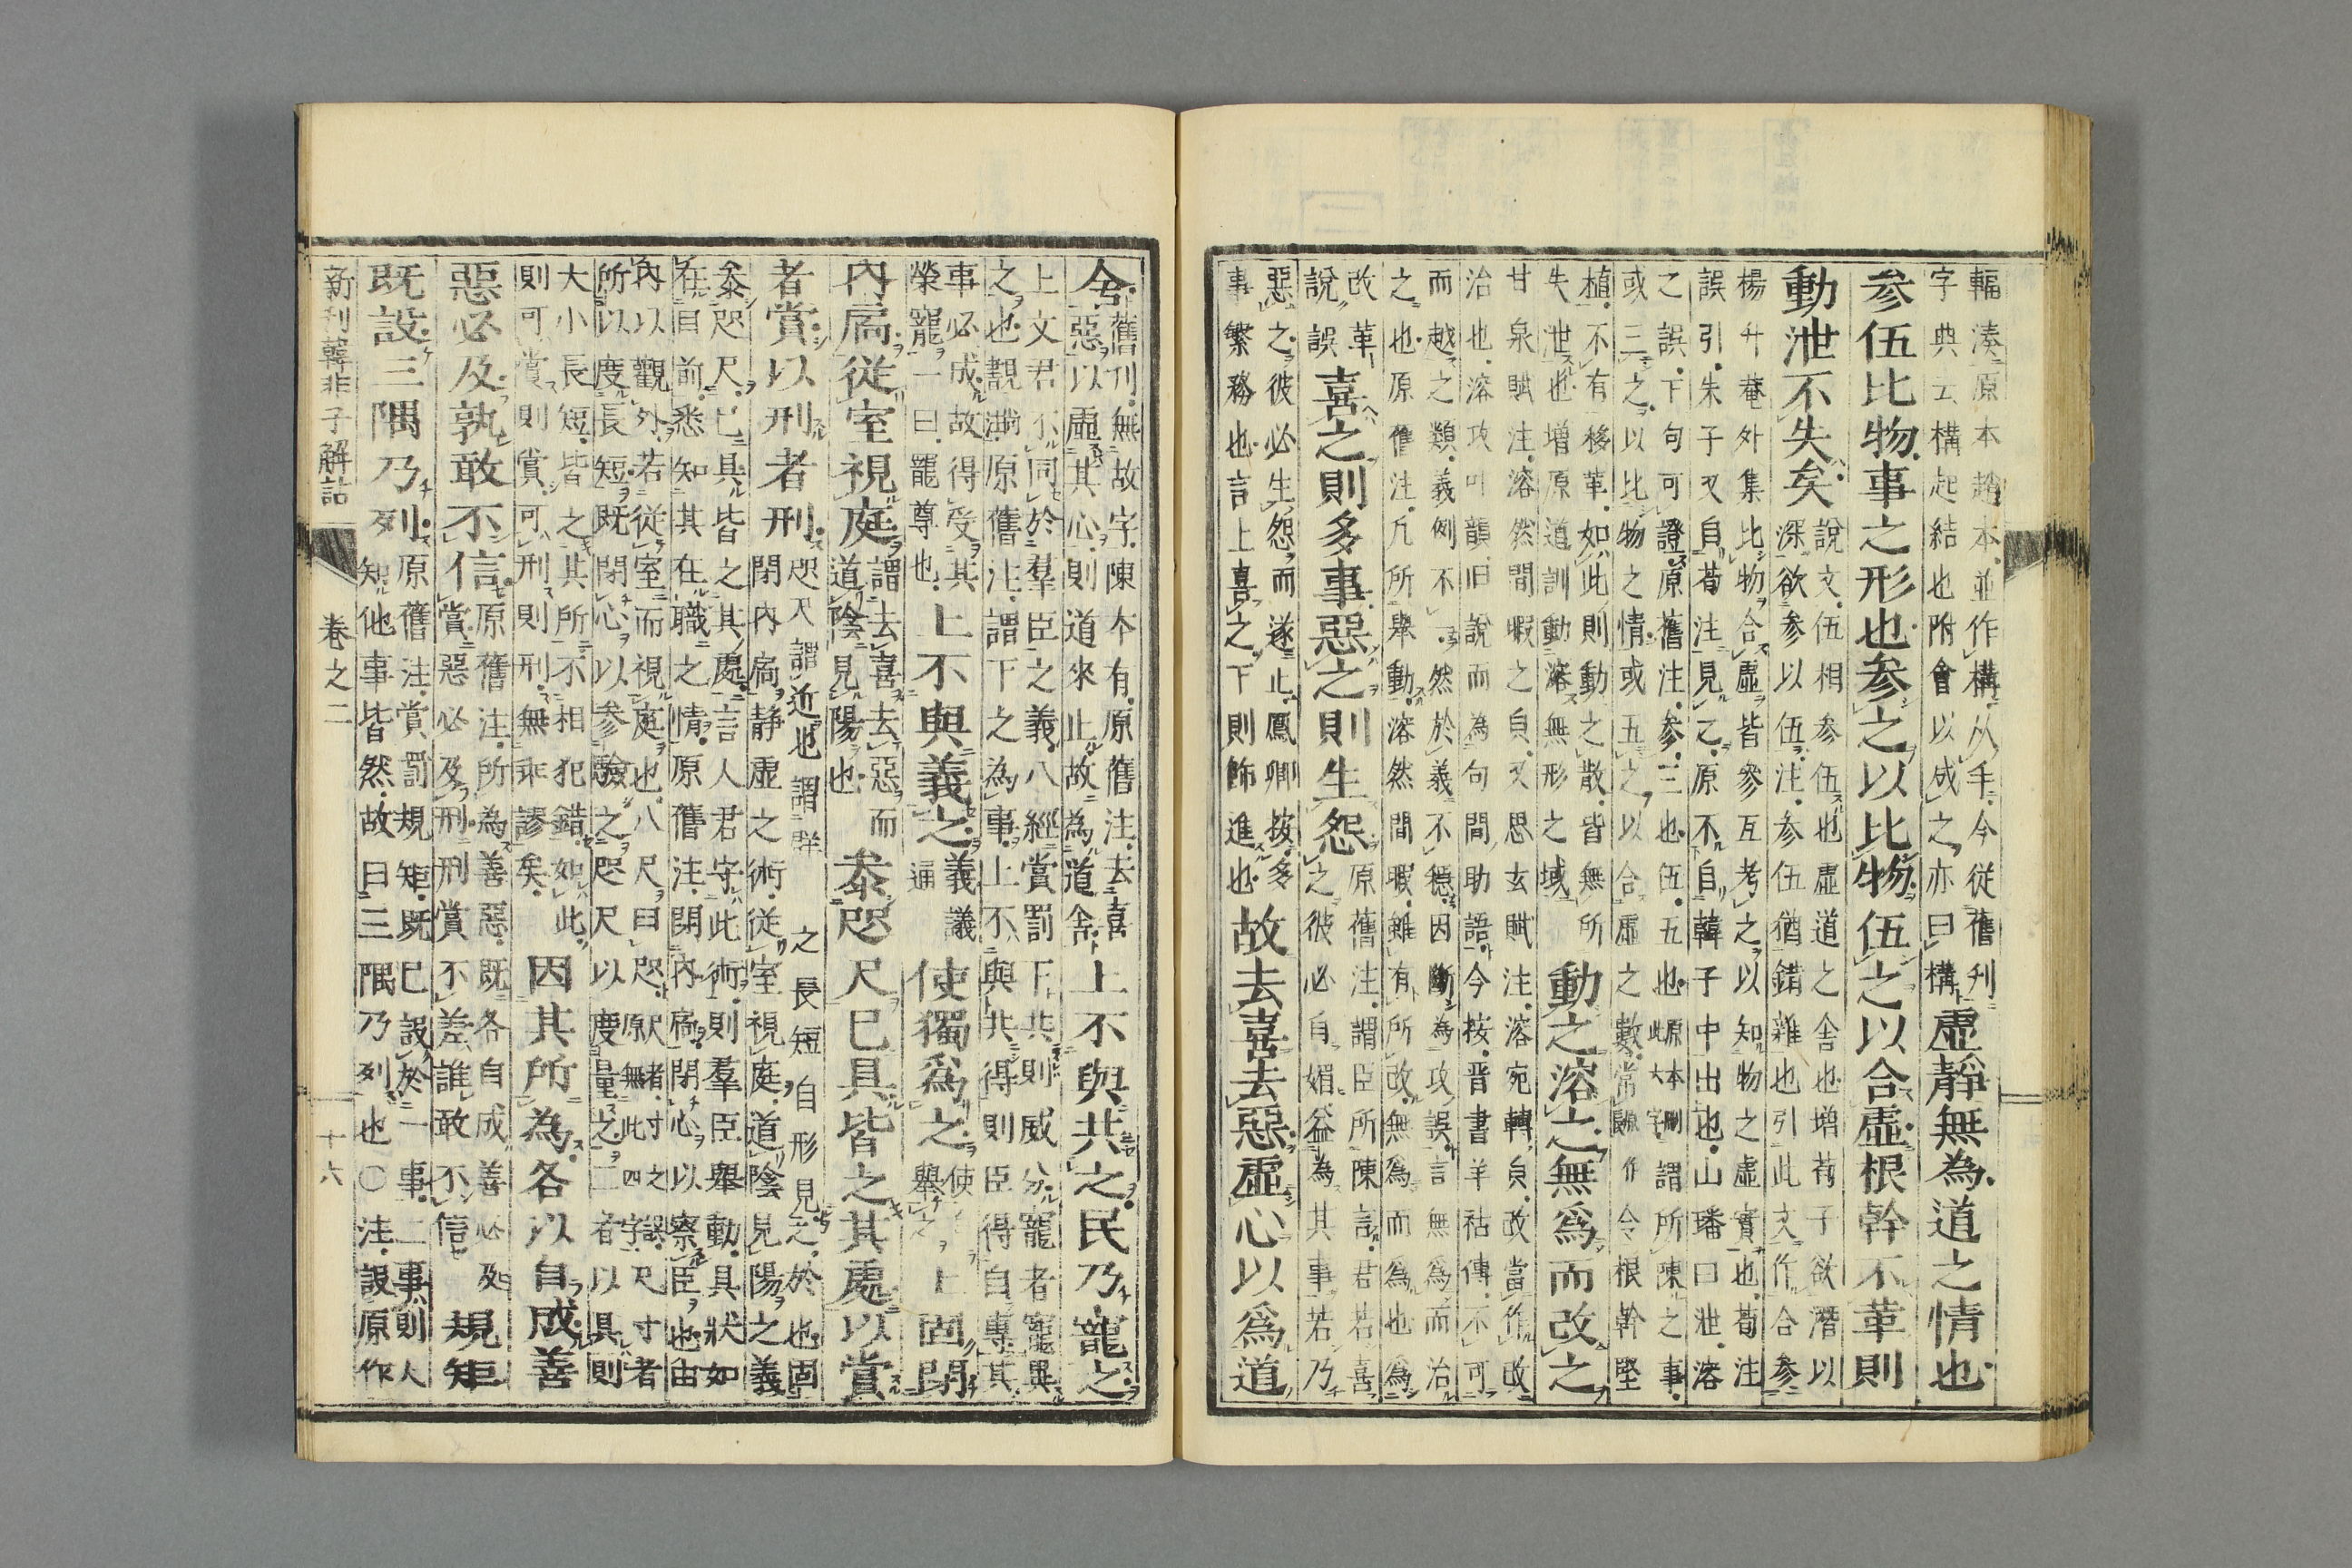 輻湊原本趙本並作構从手今從舊刋
字典云構起結也附會以成之亦曰構虛靜無為道之情也
参伍比物事之形也参之以比物伍之以合虛根幹不革則
動泄不失矣
說文伍相参伍也虛道之舎也増荀子欲潛以
深欲参以伍注参伍猶錯雜也引此文作合参
楊升菴外集比物合虛皆参互考之以知物之虛實也荀注
誤引朱子又自荀注見之原不自韓子中出也山璠曰泄溶
之誤下句可證原舊注参三也伍五也原本刪此大字謂所陳之事
或三之以比物之情或五之以合虛之數常願作令根幹堅
植不有移革如此則動之散皆無所
失泄也増原道訓動溶無形之域
動之溶之無爲而改之
甘泉賦注溶然間暇之皃又思玄賦注溶宛轉皃改當作攻
治也溶攻叶韻旧說而為句間助語今按晋書羊祜傳不可
而越之類義例不然於義不穏因斷為攻誤言無為而治
之也原舊注凡所舉動溶然間暇雖有所改無為而為也為
改革
說誤
喜之則多事惡之則生怨
原舊注謂臣所陳言君若喜
之彼必自媚益為其事若乃
惡之彼必生怨而遂止鳳卿按多
事繁務也言上喜之下則飾進也
故去喜去惡虛心以爲道
舍
舊刋無故字陳本有原舊注去喜
惡以虛其心則道來止故為道舎
上不與共之民乃寵之
上文君不同於羣臣之義八經賞罰下共則威分寵者寵異
之也觀瀾原舊注謂下之為事上不與共得則臣得自專其
事必成故得受其
榮寵一曰罷尊也
上不與義之
義議
通
使獨爲之
使
舉之
上固閉
內扃從室視庭
謂去喜去惡而
道陰見陽也
叅咫尺已具皆之其處以賞
者賞以刑者刑
咫尺謂近也謂群之長短自形見之於也固
閉內扃靜虛之術從室視庭道陰見陽之義
叅咫尺已具皆之其處言人君守此術則羣臣舉動具狀如
在目前悉知其在職之情原舊注閉內扃閉心以察臣也由
內以觀外若從室而視庭也八尺曰咫咫者寸之誤尺寸者
原無此四字
所以度長短既閉心以参驗之咫尺以度量之二者以具則
大小長短皆之其所不相犯錯如此
則可賞則賞可刑則刑無乖謬矣
因其所為各以自成善
惡必及孰敢不信
原舊注所為善惡既各自成善必及
賞惡必及刑刑賞不差誰敢不信
規矩
既設三隅乃列
原舊注賞罰規矩既已設於一事二事則人
知他事皆然故曰三隅乃列也〇注設原作
新刋韓非子解詁
卷之二
十六